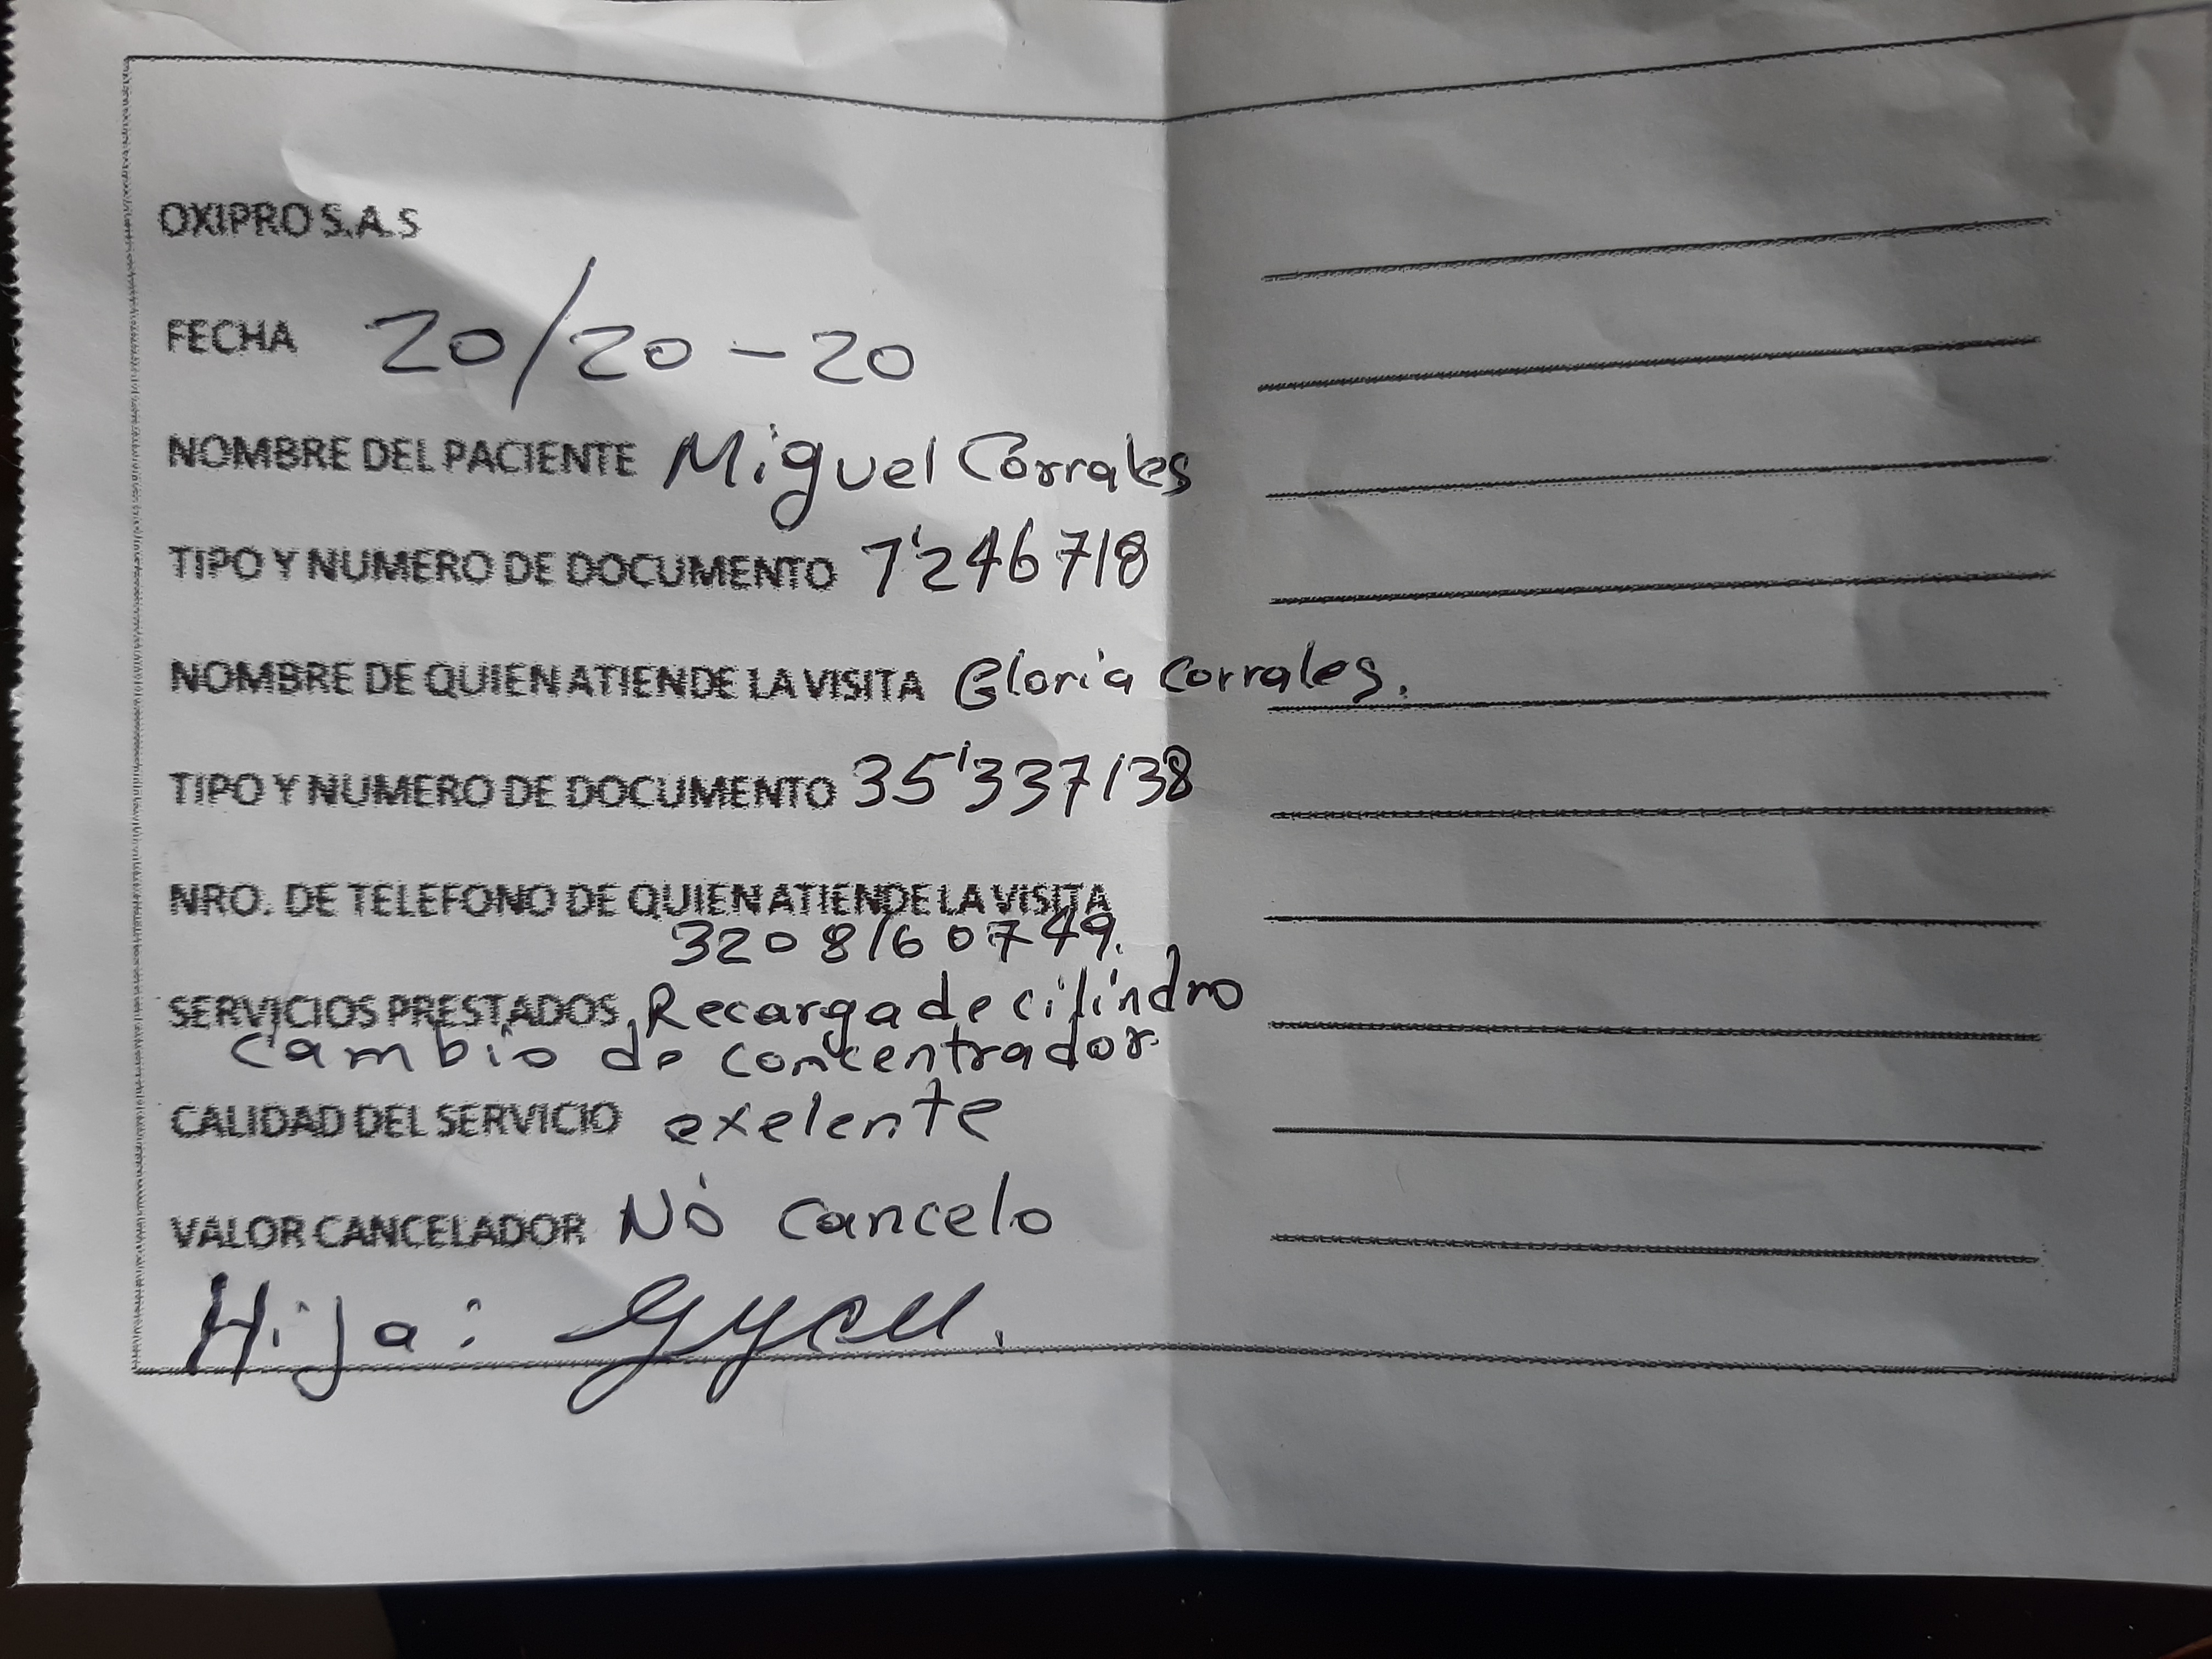 OXIPRO S.A.S
FECHA 20/20-20
NOMBRE DEL PACIENTE Miguel Corrales
TIPO Y NUMERO DE DOCUMENTO 7'246718
NOMBRE DE QUIEN ATIENDE LA VISITA Gloria Corrales.
TIPO Y NUMERO DE DOCUMENTO 35'337138
NRO. DE TELEFONO DE QUIEN ATIENDE LA VISITA
3208160749.
SERVICIOS PRESTADOS Recarga de cilindro
cambio de concentrador.
CALIDAD DEL SERVICIO exelente
VALOR CANCELADOR No cancelo
Hija: